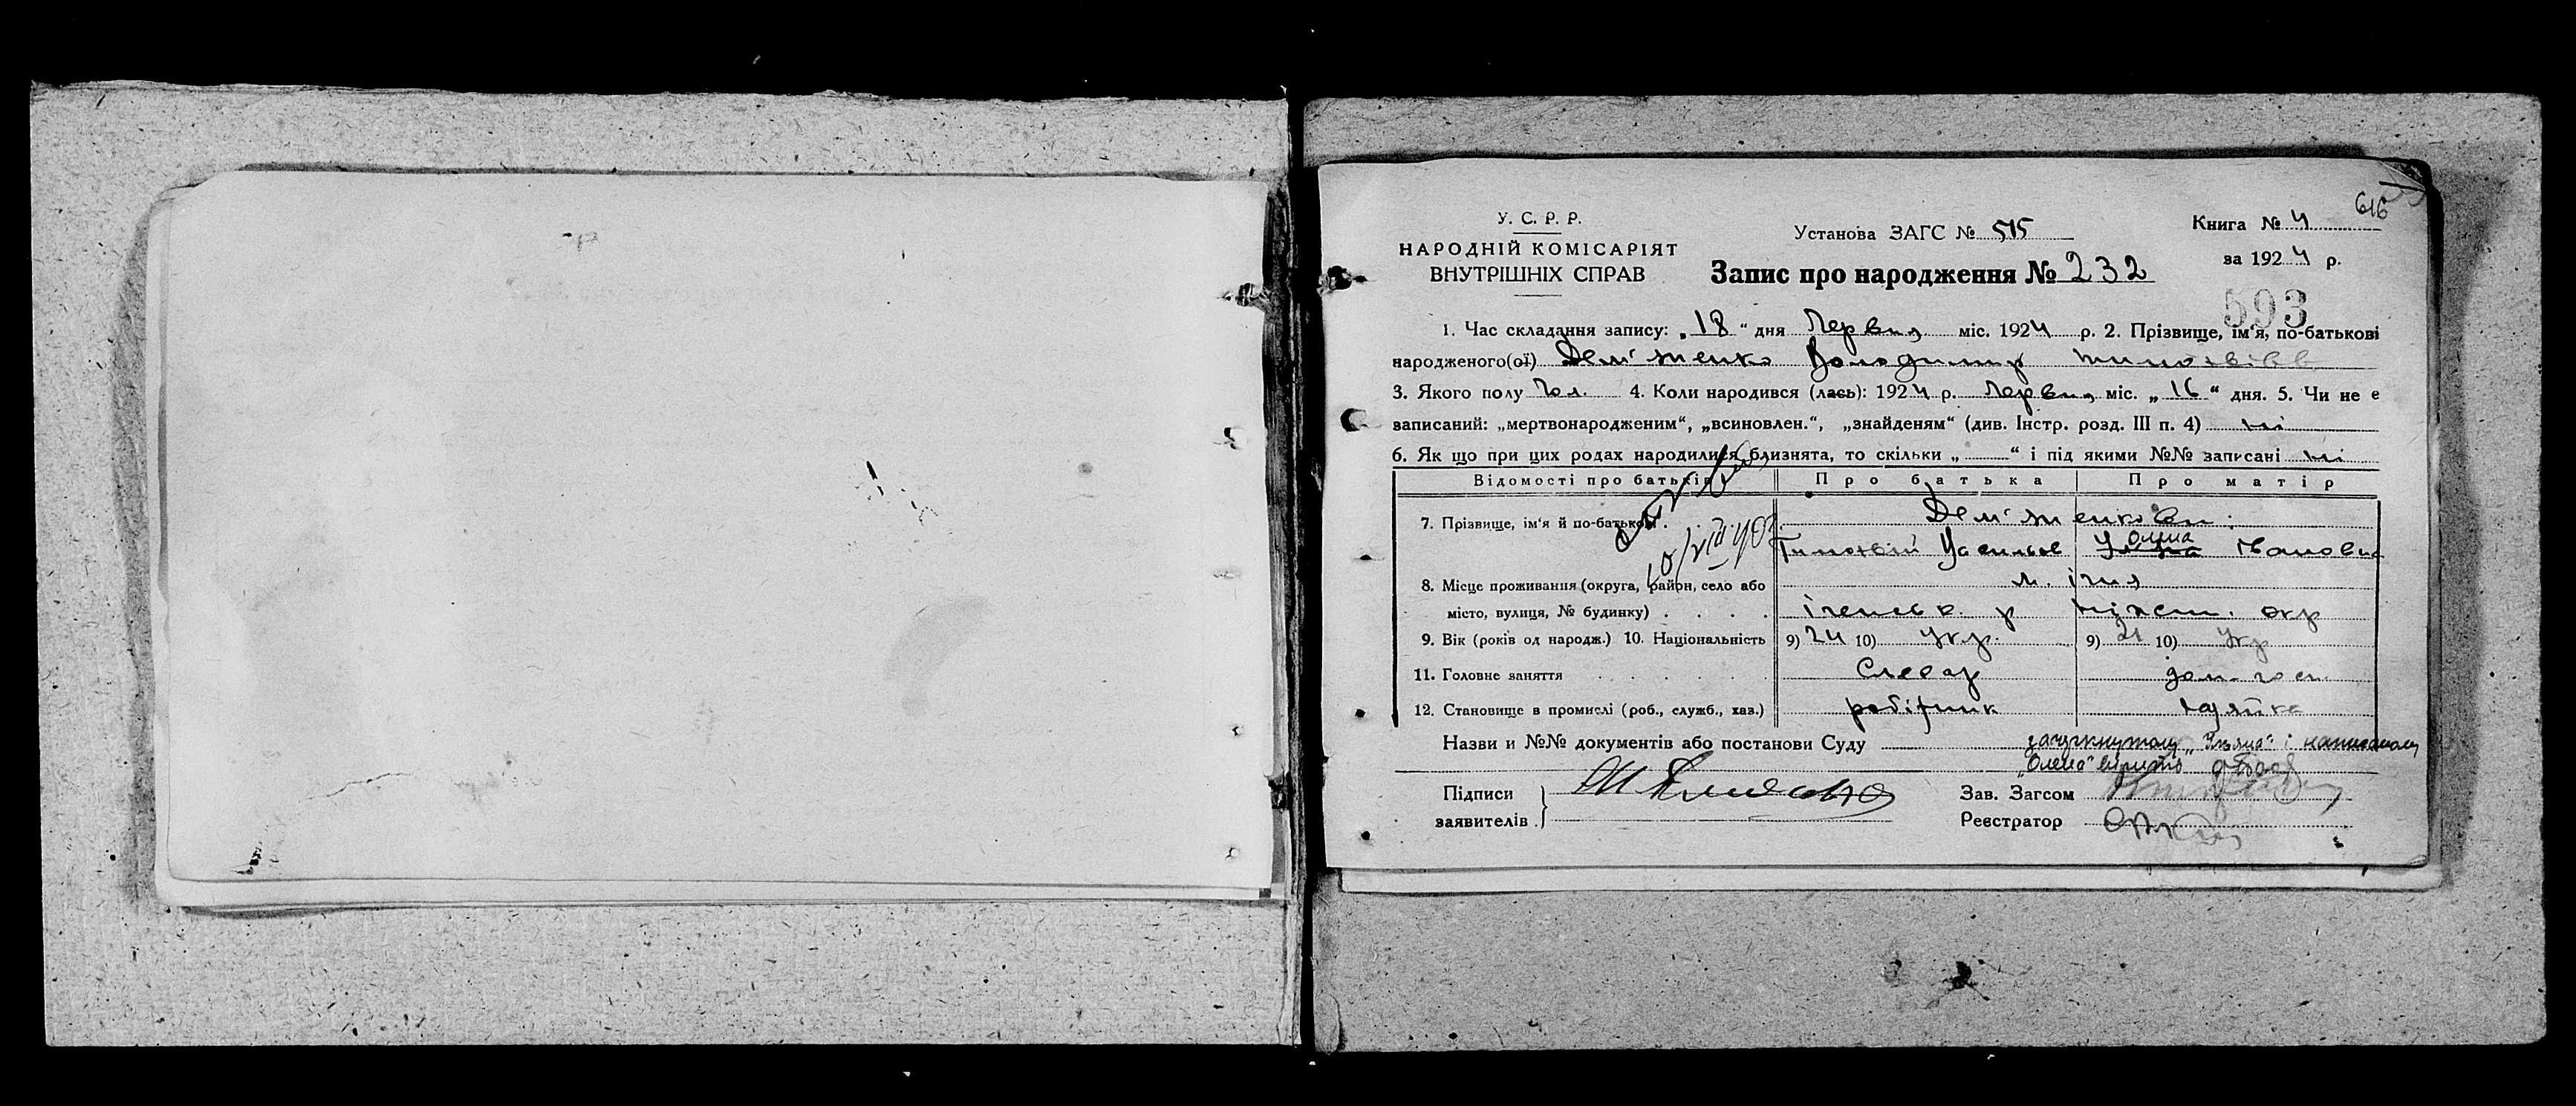 616
У. С. Р. Р.
НАРОДНІЙ КОМІСАРІЯТ
ВНУТРІШНІХ СПРАВ
Установа ЗАГС № 515
Книга № 4
за 1924 р.
Запис про народження № 232
593
1. Час складання запису: „18“ дня Червня міс. 1924 р. 2. Прізвище, ім'я, по-батькові
народженого(ої) Дем'яненко Володимир Тимохвієв
3. Якого полу Чол. 4. Коли народився (лась): 1924 р. Червня міс. „16“ дня. 5. Чи не є
записаний: „мертвонародженим“, „всиновлен.“, „знайденям“ (див. Інстр. розд. III п. 4) ні
6. Як що при цих родах народилися близнята, то скільки „ “ і під якими №№ записані ні
Відомості про батьків Про батька Про матір
7. Прізвище, ім'я й по-батькові . Дем'яненкови:
Тимохвій Васильов Уляна Олена Івановна
8. Місце проживання (округа, район, село або м. Ічня
місто, вулиця, № будинку) . . . . Іченськ. р Ніжен. окр
9. Вік (років од народж.) 10. Національність 9) 24 10) Укр. 9) 21 10) Укр
11. Головне заняття . . . . . . Слесар дом. госп.
12. Становище в промислі (роб., служб., хаз.) робітник хазяйка
Назви и №№ документів або постанови Суду закреслному „Уляна“ і написаному
„Олена“ вірить
Підписи
заявителів
Зав. Загсом
Реєстратор